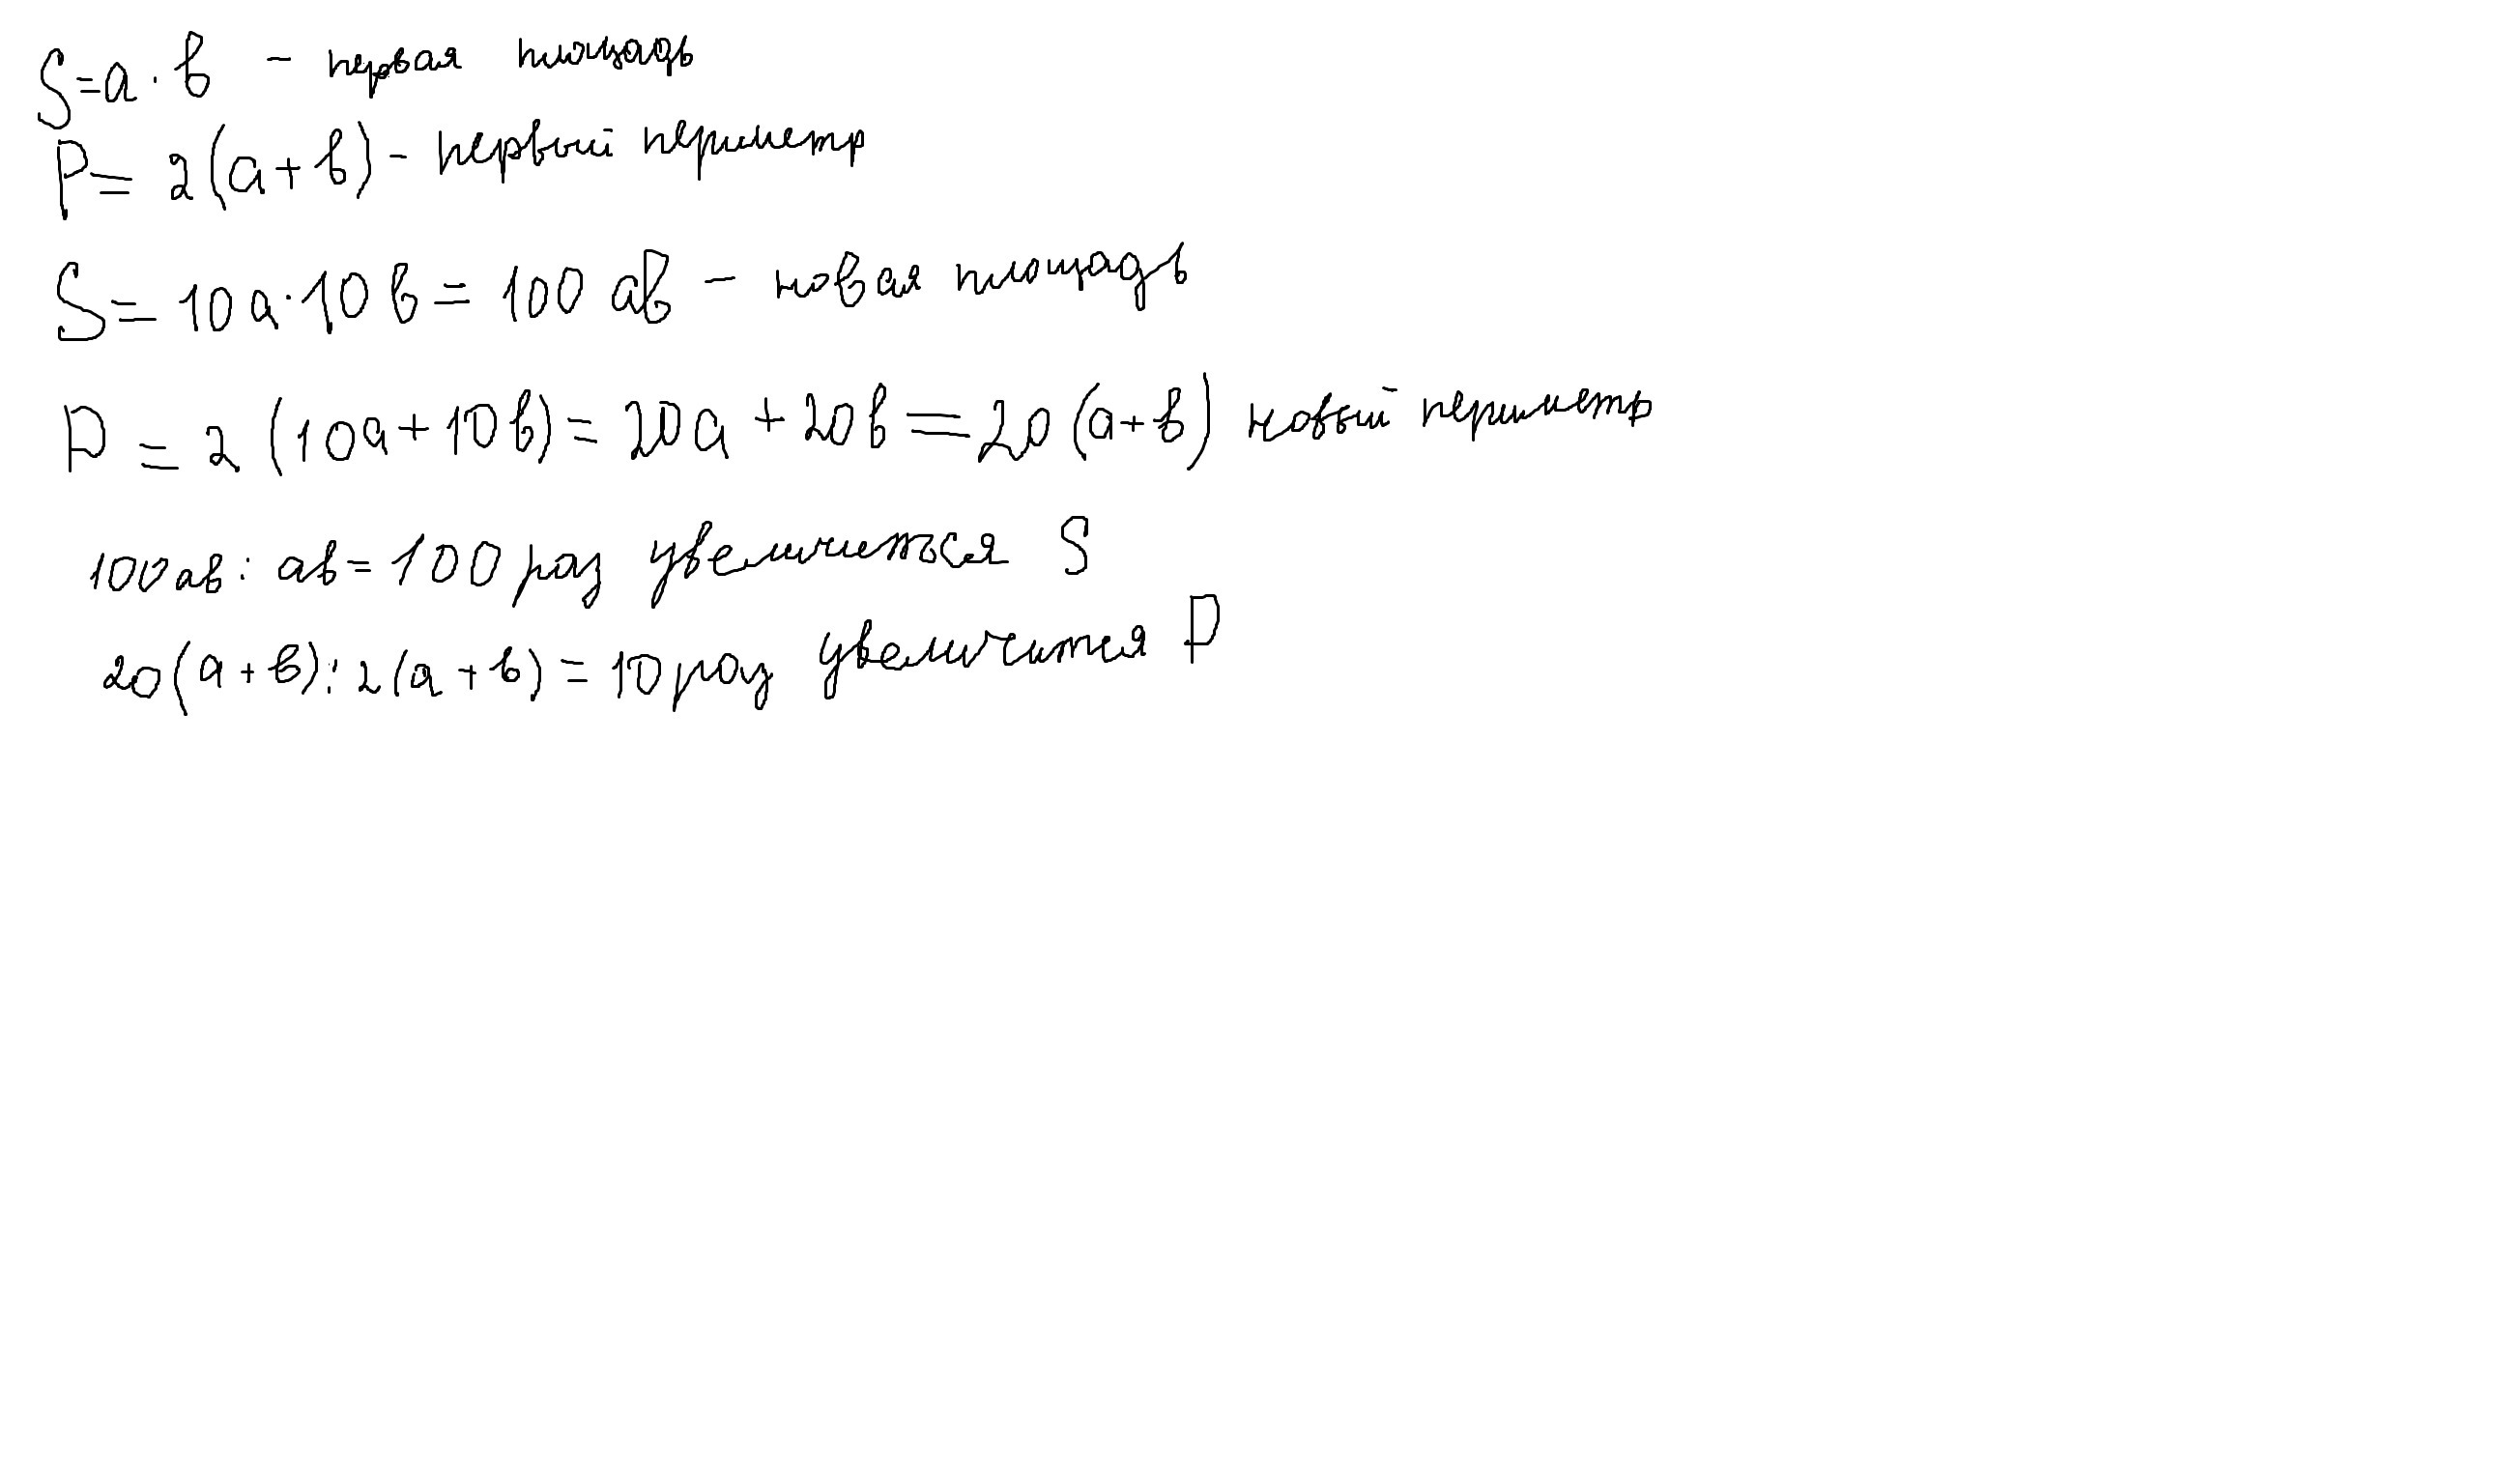 S=a·b - первая площадь
P= 2(a+b) - первый периметр
S=10a·10b=100ab - новая площадь
P=2(10a+10b)=20a+20b=20(a+b) новый периметр
100ab:ab=100 раз увеличиться S
20(a+b):2(a+b)=10 раз увеличится P